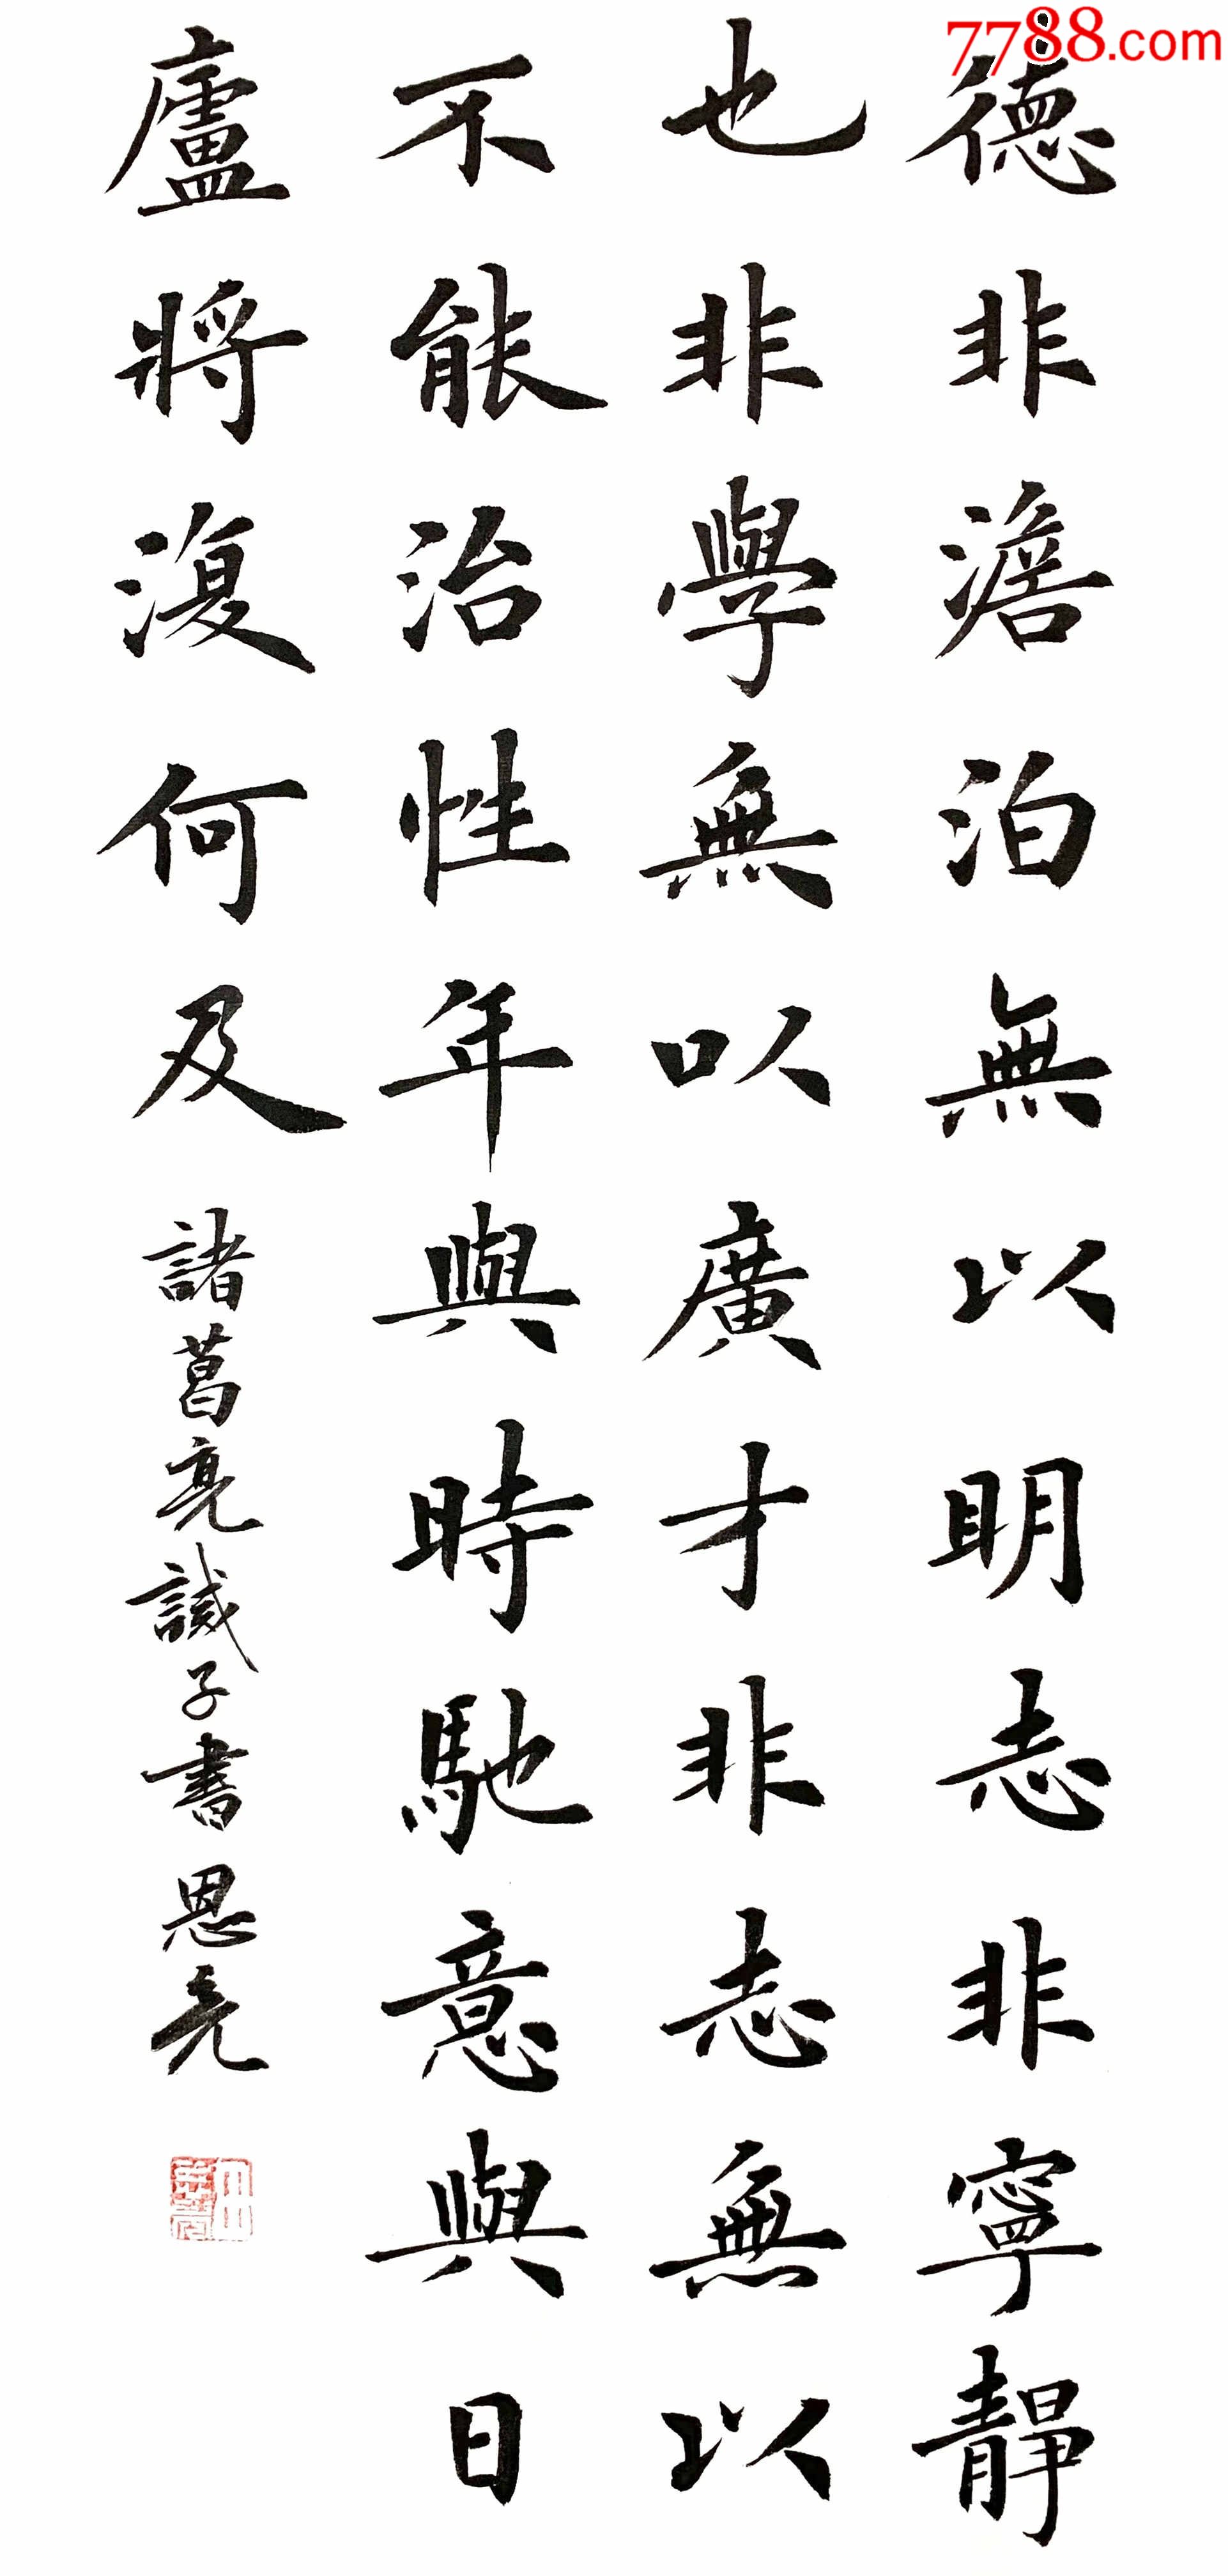 7788.com
德非澹泊無以明志非寧靜
也非學無以廣才非志無以
不能治性年與時馳意與日
廬將復何及
諸葛亮誡子書恩亮